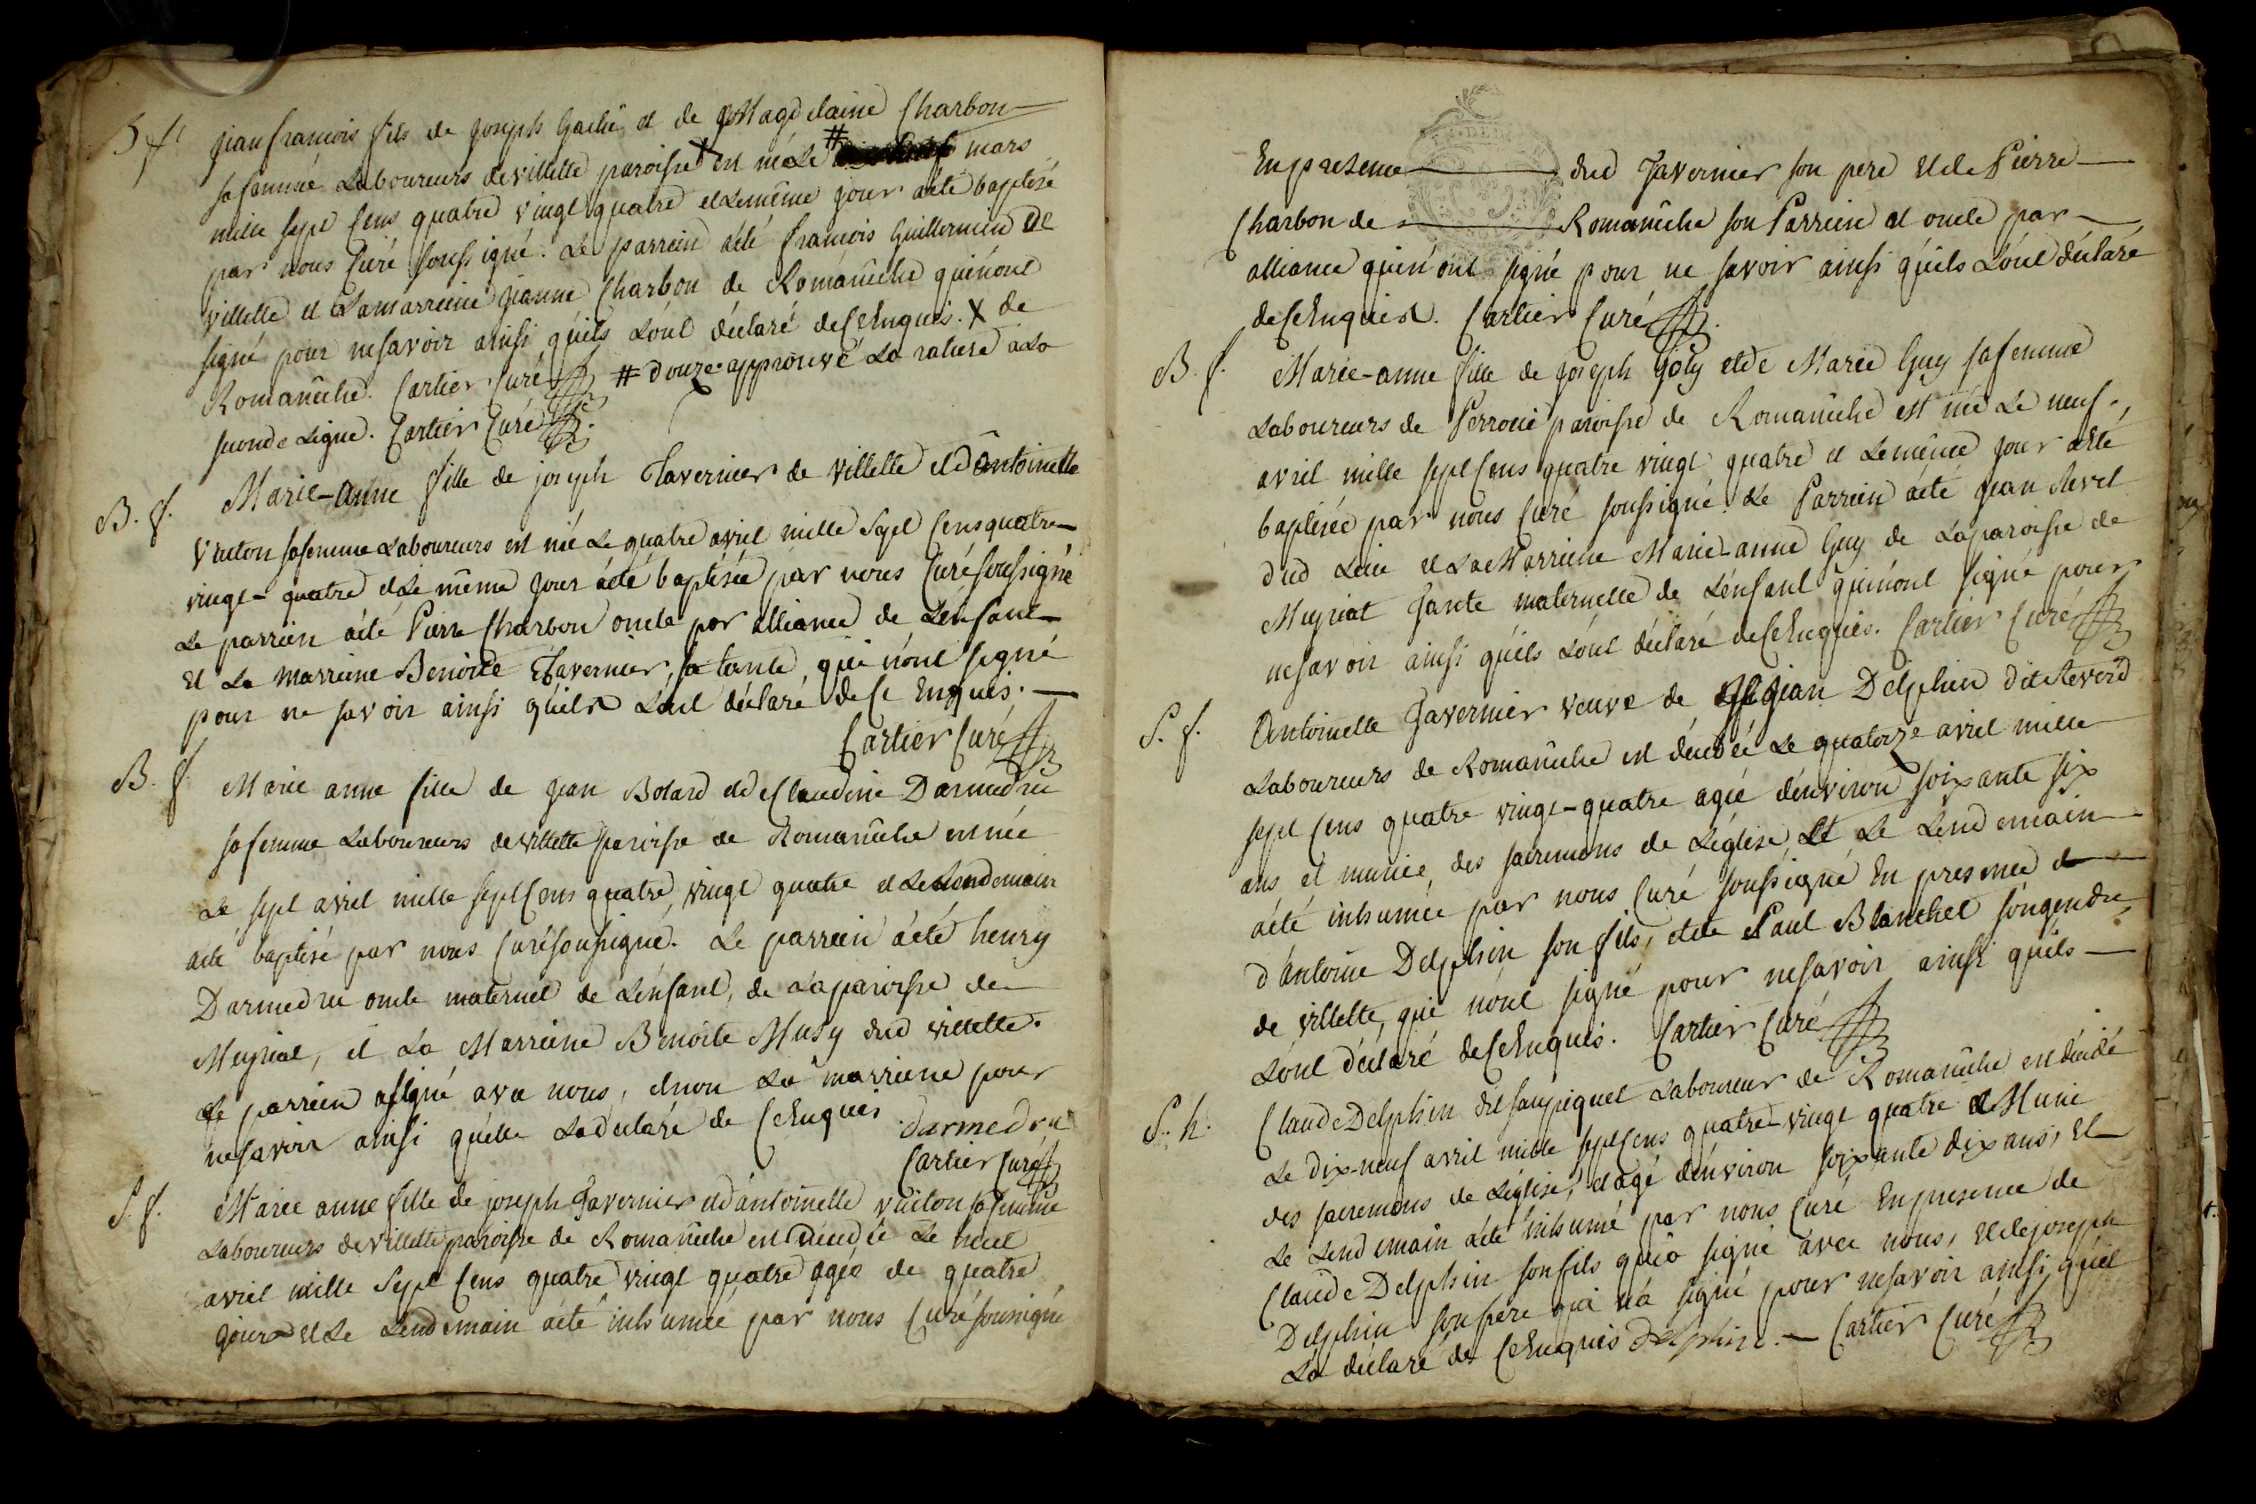 B f
jean francois fils de joseph Gache et de Magdelaine Charbon
sa femme Laboureurs de villette paroisse X est né le # mars
mille sept Cens quatre vingt quatre et le même jour a été baptisé
par nous Curé soussigné. Le parrein a été francois Guillermin de
villette et La marreine jeanne Charbon de Romanêche qui n'ont
signé pour ne savoir ainsi qu'ils L'ont déclaré de Ce Enquis. X de
Romanêche. Cartier Curé # douze. approuvé La rature a La
seconde Ligne. Cartier Curé.
B. f.
Marie-Anne fille de joseph Tavernier de villette et d'Antoinette
Vuiton sa femme Laboureurs est née Le quatre avril mille Sept Cens quatre-
vingt-quatre et Le même jour a été baptisée par nous Curé soussigné
Le parrein a été Pierre Charbon oncle par alliance de L'enfant
et La Marreine Benoite Tavernier, sa tante, qui n'ont signé
pour ne savoir ainsi qu'ils L'ont déclaré de Ce Enquis.
Cartier Curé
B. f
Marie anne fille de jean Bolard et de Claudine Darmedru
sa femme Laboureurs de villette paroisse de Romanêche est née
Le sept avril mille sept Cens quatre vingt quatre et Le Lendemain
a été baptisé par nous Curé soussigné. Le parrein a été henry
Darmedru oncle maternel de L'enfant, de La paroisse de
Meyriat, et La Marreine Benoite Musy dud villette.
Le parrein a signé avec nous, et non La marreine pour
ne savoir ainsi qu'elle La déclaré de Ce Enquis darmedru
Cartier Curé
S. f.
Marie anne fille de joseph Tavernier et d'antoinette vuiton sa femme
Laboureurs de villette paroisse de Romanêche est décédée Le huit
avril mille Sept Cens quatre vingt quatre agée de quatre
jours et Le Lendemain a été inhumée par nous Curé soussigné
En presence dud Tavernier son pere et de Pierre
Charbon de Romanêche son Parrein et oncle par
alliance qui n'ont signé pour ne savoir ainsi qu'ils L'ont déclaré
de Ce Enquis. Cartier Curé.
B. f.
Marie-anne fille de joseph Joly et de Marie Guy sa femme
Laboureurs de paroisse de Romanêche est née Le neuf
avril mille sept Cens quatre vingt quatre et Le même jour a été
baptisée par nous Curé soussigné. Le Parrein a été jean Revel
dud Lieu et La Marreine Marie-anne Guy de La paroisse de
Meyriat Tante maternelle de L'enfant qui n'ont signé pour
ne savoir ainsi qu'ils L'ont déclaré de Ce Enquis. Cartier Curé
S. f.
Antoinette Tavernier veuve de jean Delphin dit Reverd
Laboureurs de Romanêche est décédée Le quatorze avril mille
sept Cens quatre vingt-quatre agée d'environ soixante six
ans, et munie des sacremens de L'église, et Le Lendemain
a été inhumée par nous Curé soussigné En presence
d'antoine Delphin son fils, et de Paul Blanchet son gendre
de villette, qui n'ont signé pour ne savoir ainsi qu'ils
L'ont déclaré de Ce Enquis. Cartier Curé
S. h.
Claude Delphin dit saupiquet Laboureur de Romanêche est décédé
Le dix-neuf avril mille sept Cens quatre-vingt quatre et Muni
des sacremens de L'église, et agé d'environ soixante dix ans, et
Le Lendemain a été inhumé par nous Curé En presence de
Claude Delphin son fils qui a signé avec nous, et de joseph
Delphin son frere qui n'a signé pour ne savoir ainsi qu'il
La déclaré de Ce Enquis Delphin. Cartier Curé